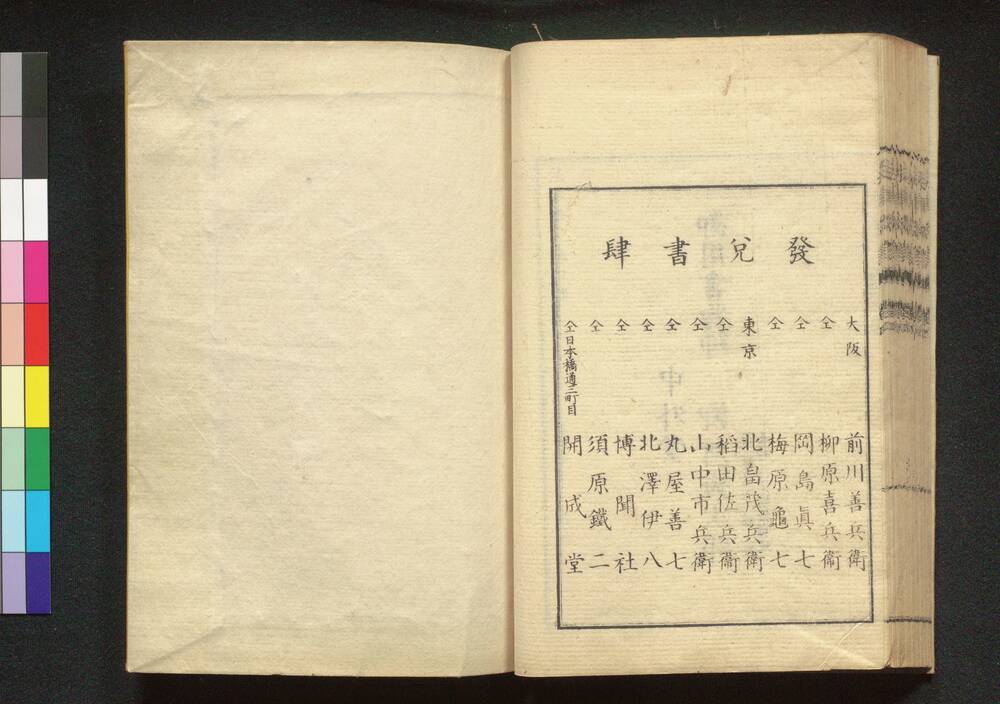 發兌書肆
大阪 前川善兵衛
仝 柳原喜兵衞
仝 岡島眞七
仝 梅原龜七
東京 北畠茂兵衛
仝 稻田佐兵衞
仝 山中市兵衛
仝 丸屋善七
仝 北澤伊八
仝 博聞社
仝 須原鐵二
仝日本橋通三町目 開成堂